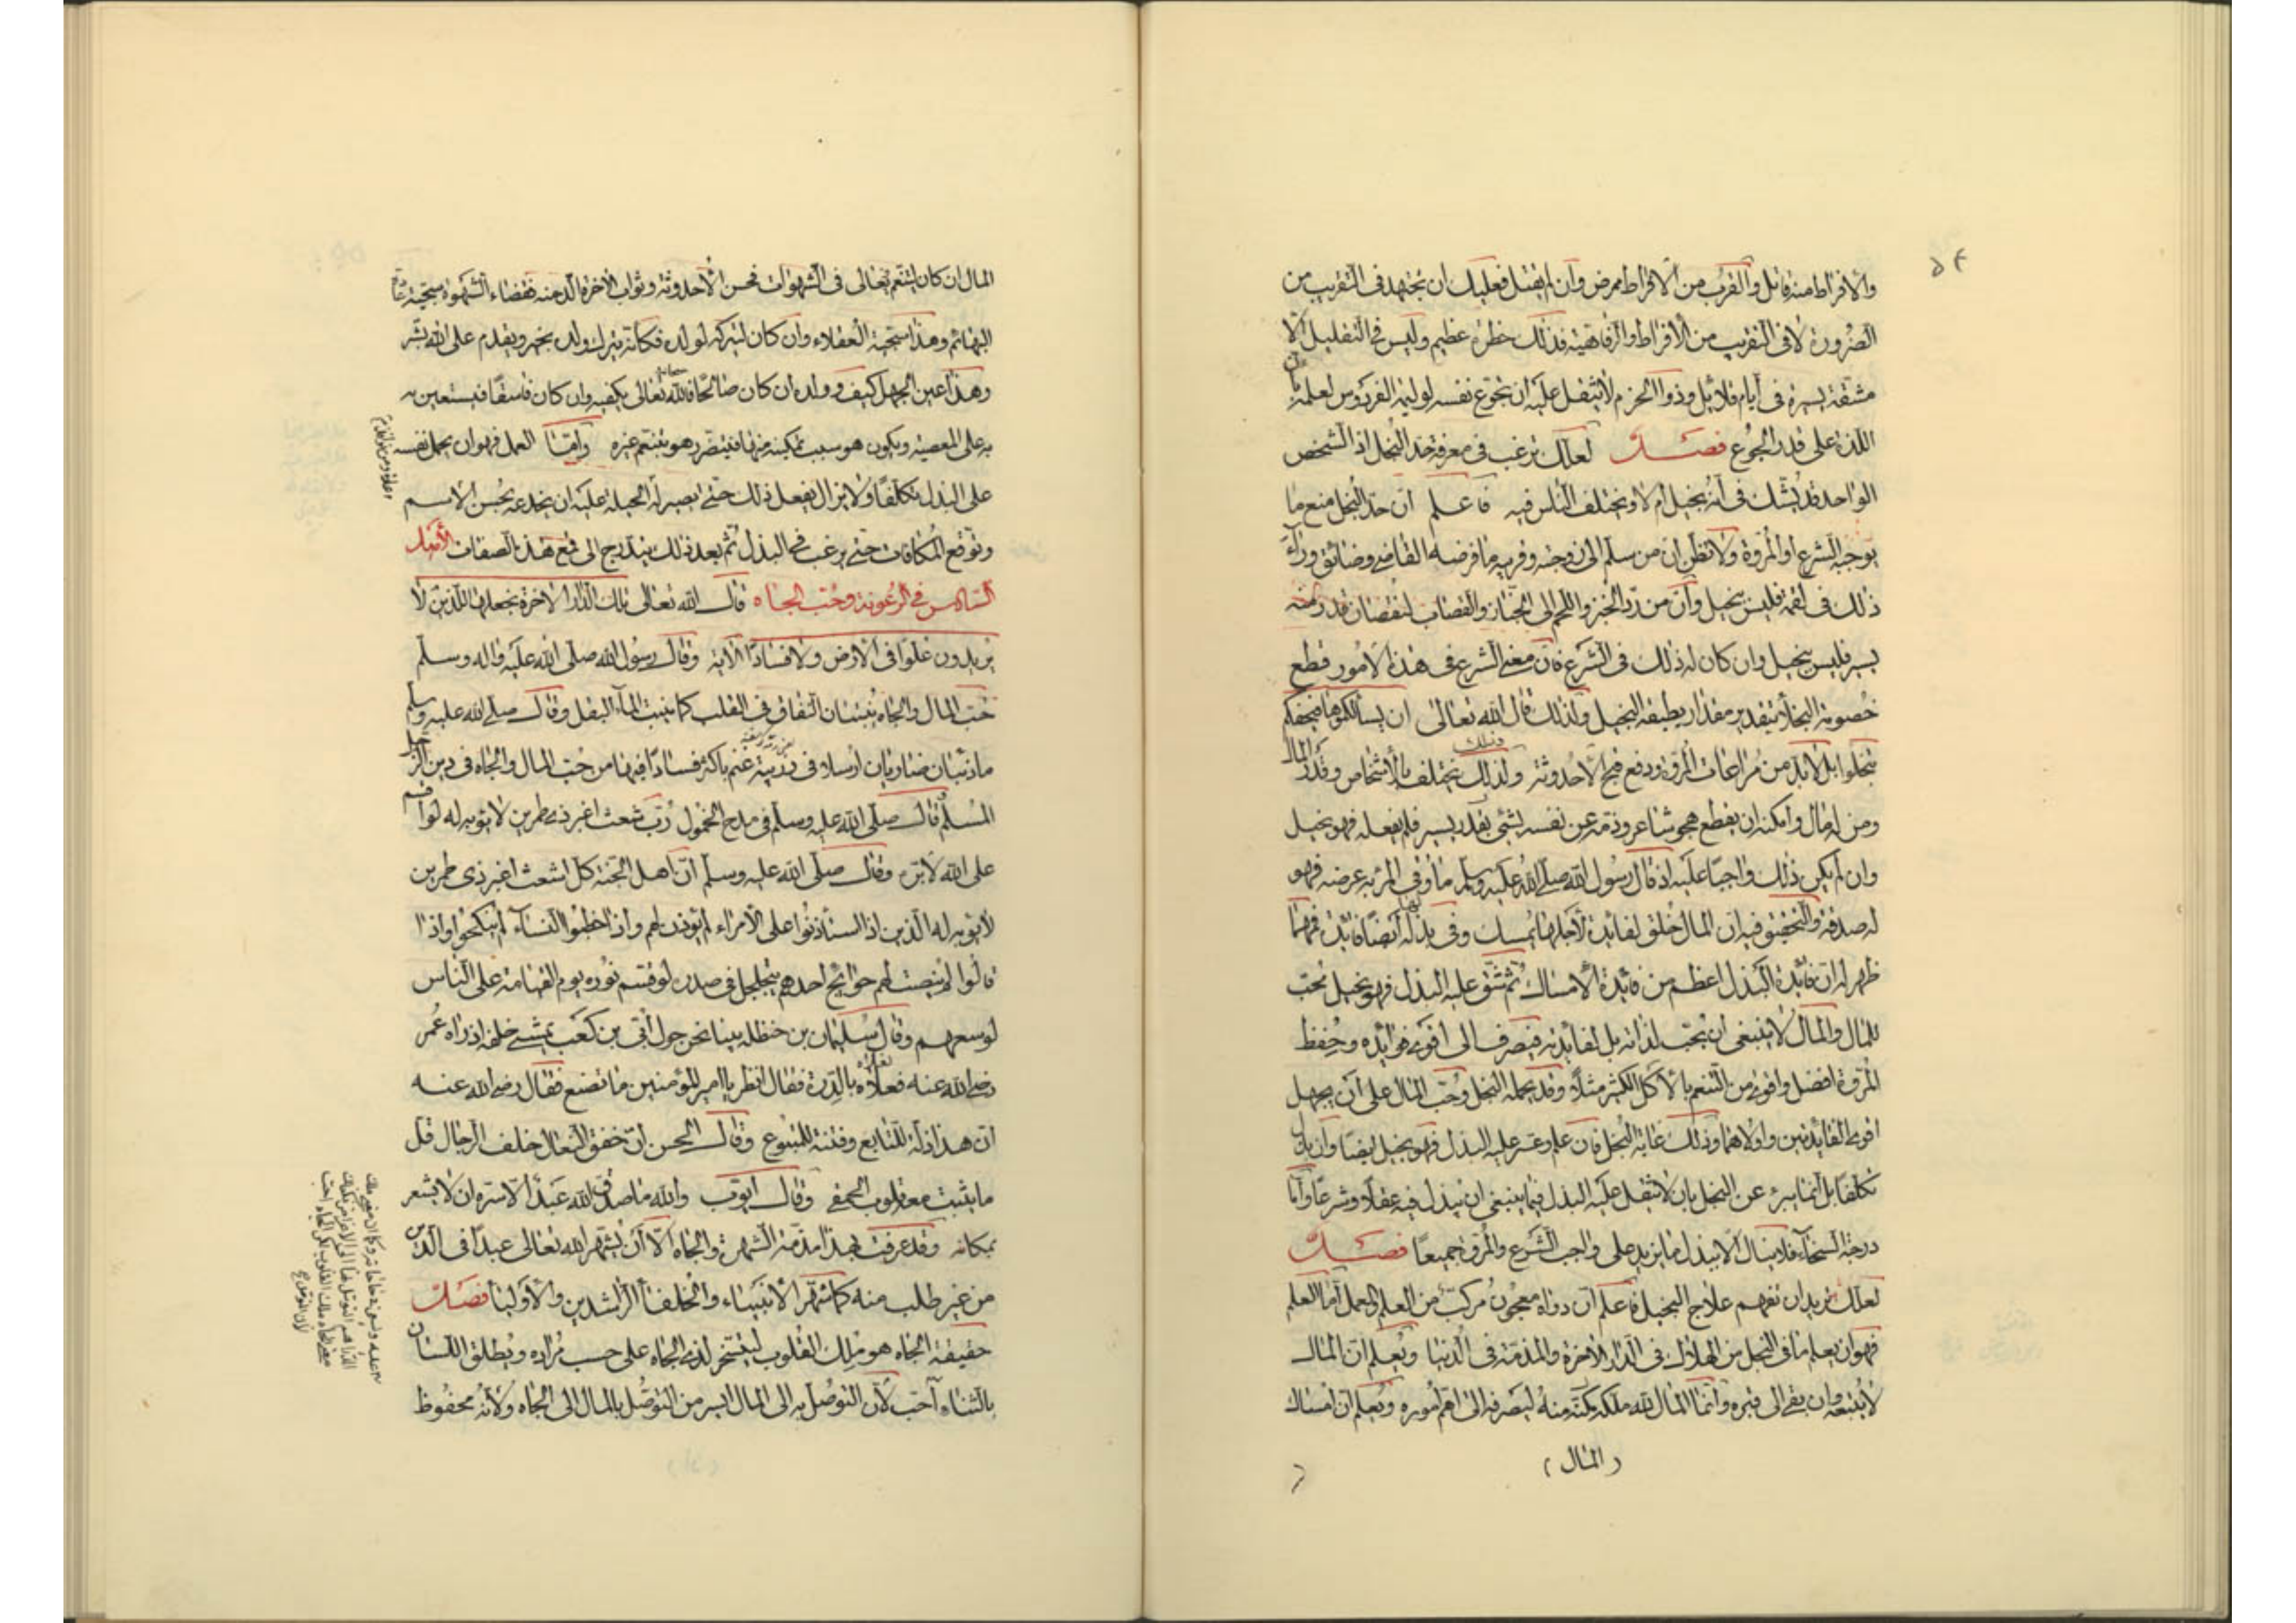 ٥٤
والافراط منه قاتل والقرب من الافراط ممرض وان لم يقتل فعليك ان تجتهد فى التقريب من
الضرورة لا فى التقريب من الافراط والرفاهية فذلك خطره عظيم وليس فى التقليل الا
مشقة يسيرة فى أيام قلائل وذوا الحزم لا يثقل عليه ان يجوع نفسه لوليمة الفردوس لعلمه بان
اللذة على قدر الجوع فصل لعلك ترغب فى معرفة حد البخل اذ الشخص
الواحد قد يشك فى انه بخيل ام لا ويختلف الناس فيه فاعلم ان حد البخل منع ما
يوجبه الشرع او المروة ولا تظن ان من سلم الى زوجته وقريبه ما فرضه القاضى وضائق ورآء
ذلك فى لقمة فليس ببخيل وان من رد الخبز واللحم الى الخباز والقصاب لنقصان قدر منه
يسير فليس ببخيل وان كان له ذلك فى الشرع فان معنى الشرع فى هذه الامور قطع
خصومة البخلآء بتقدير مقدار يطيقه البخيل ولذلك قال الله تعالى ان يسألكموها فيحفكم
تبخلوا بل لا بد من مراعات المروة ودفع قبح الاحدوثة وذلك يختلف بالأشخاص وقدر المال
ومن له مال وامكنه ان يقطع هجو شاعر وذمه عن نفسه بشئ بقدر يسير فلم يفعله فهو بخيل
وان لم يكن ذلك واجبا عليه اذ قال رسول الله صلى الله عليه وسلم ما وقى المرء به عرضه فهو
له صدقة والتحقيق فيه ان المال خلق لفائدة لأجلها يمسك وفى بذله ايضا فائدة فمهما
ظهر له ان فائدة البذل اعظم من فائدة الأمساك ثم شق عليه البذل فهو بخيل محب
للمال والمال لا ينبغى ان يحب لذاته بل لفائدته فيصرف الى اقوى فوائده وحفظ
المروة افضل واقوى من التنعم بالأكل الكثير مثلا وقد يحمله البخل وحب المال على أن يجهل
اقوى الفائدتين واولاهما وذلك غاية البخل فان علم وعسر عليه البذل فهو بخيل ايضا وان بذل
تكلفا بل انما يبرء عن البخل بان لا يثقل عليه البذل فيما ينبغى ان يبذل فيه عقلا وشرعا وأما
درجة السخآء فلا ينال الا ببذل ما يزيد على واجب الشرع والمروة جميعا فصل
لعلك تريد ان تفهم علاج البخيل فاعلم ان دواه معجون مركب من العلم والعمل أما العلم
فهو ان يعلم ما فى البخل من الهلاك فى الدار الاخرة والمذمة فى الدنيا ويعلم ان المال
لا يتبعه وان بقى الى قبره وانما المال لله ملكه مكنه منه ليصرفه الى اهم أموره ويعلم ان امساك
(المال)
المال ان كان لتنعم تعالى فى الشهوات فحسن الأحدوثة وثواب الاخرة الذ منه فقضاء الشهوة سجية
البهائم وهذا سجية العقلاء وان كان ليتركه لولده فكانه يترك ولده بخير ويقدم على الله بشر
وهذا عين الجهل كيف وولده ان كان صالحا فالله تعالى يكفيه وان كان فاسقا فيستعين
به على المعصية ويكون هو سبب تمكينه منها فيتضرر هو ويتنعم غيره واما العمل فهو ان يحمل نفسه
على البذل تكلفا ولا يزال يفعل ذلك حتى يصير له الحيلة عليه ان يخدعه بحسن الاسم
وتوقع المكافات حتى يرغب فى البذل ثم بعد ذلك يتدرج الى قمع هذه الصفات الأصل
السادس فى الرعونة وحب الجاه قال الله تعالى تلك الدار الاخرة نجعلها للذين لا
يريدون علوا فى الارض ولا فسادا الاية وقال رسول الله صلى الله عليه واله وسلم
حب المال والجاه ينبتان النفاق فى القلب كما ينبت المآء البقل وقال صلى الله عليه وسلم
ما ذئبان ضاريان ارسلا فى زريبة غنم باكثر فسادا فيها من حب المال والجاه فى دين الرجل
المسلم وقال صلى الله عليه وسلم فى مدح الخمول رب شعث اغبر ذى طمرين لا يؤبه له لو اقسم
على الله لابره وقال صلى الله عليه وسلم ان اهل الجنة كل اشعث اغبر ذى طمرين
لا يؤبه له الذين اذا استأذنوا على الأمراء لم يؤذن لهم واذا خطبوا النسآء لم ينكحوا واذا
قالوا لم ينصت لهم حوائج احدهم يتجلجل فى صدره لو قسم نوره يوم القيامة على الناس
لوسعهم وقال سليمان بن حنظله بينا نحن حول ابى بن كعب نمشى خلفه اذ راه عمر
رضى الله عنه فعلاه بالدرة فقال انظر يا امير المؤمنين ما تصنع فقال رضى الله عنه
ان هذا ذلة للتابع وفتنة للمتبوع وقال الحسن ان خفق النعال خلف الرجال قل
ما يثبت معه قلوب الحمقى وقال ايوب والله ما صدق الله عبدا الا سره ان لا يشعر
بمكانه وقد عرفت بهذا مذمة الشهرة والجاه الا أن يشهر الله تعالى عبدا فى الدين
من غير طلب منه كما شهر الأنبياء والخلفآ الراشدين والأوليآ فصل
حقيقة الجاه هو ملك القلوب ليتسخر لذى الجاه على حسب مراده ويطلق اللسان
بالثناء احب لأن التوصل به الى المال ايسر من التوصل بالمال الى الجاه ولأنه محفوظ